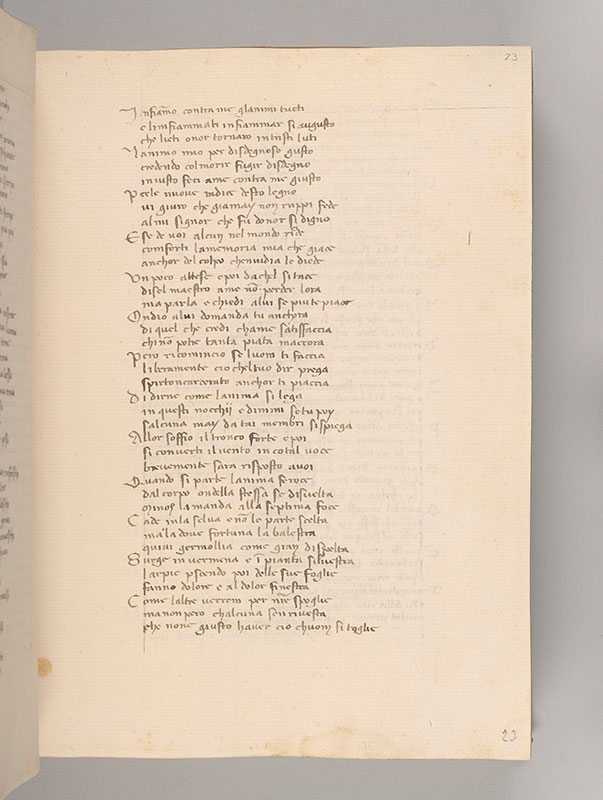 23
Infiamo contra me glanimi tucti
e linfiammati infiammar si augusto
che lieti onor tornaro in tristi luti
Lanimo mio per disdegnoso gusto
credendo col morir fugir disdegno
iniusto feci ame contra me giusto
Per le nuove radice desto legno
vi giuro che giamay non ruppi fede
al mi signor che fu donor si digno
E se de voi alcun nel mondo riede
comforti la memoria mia che giace
anchor del colpo che nvidia le diede
Un poco attese e poi dachel si tace
disel maestro ame nō perder lora
ma parla e chiedi alui se piu te piace
Ondio alui domanda tu anchora
di quel che credi chame satisfaccia
chi nō potre tanta piata maccora
Pero ricomincio se luom ti faccia
liberamente cio cheltuo dir priega
spiritoncarcerato anchor ti piaccia
Di dirne come lanima si lega
in questi nocchij e dimmi se tu poy
salcuna may da tai membri si spiega
Allor soffio il tronco forte e poi
si converti il vento in cotal voce
brevemente sara risposto avoi
Quando si parte lanima feroce
dal corpo ondella stessa se disvelta
minos la manda alla septima foce
Cade in la selva e nō le parte scelta
ma la dove fortuna la balestra
quivi germollia come gran di spelta
Surge in vermena e i pianta silvestra
larpie pscendo poi delle sue foglie
fanno dolore e al dolor finestra
Come laltre verrem per nr̄e spoglie
ma non pero chalcuna sen rivesta
che none giusto haver cio chuom si toglie
23